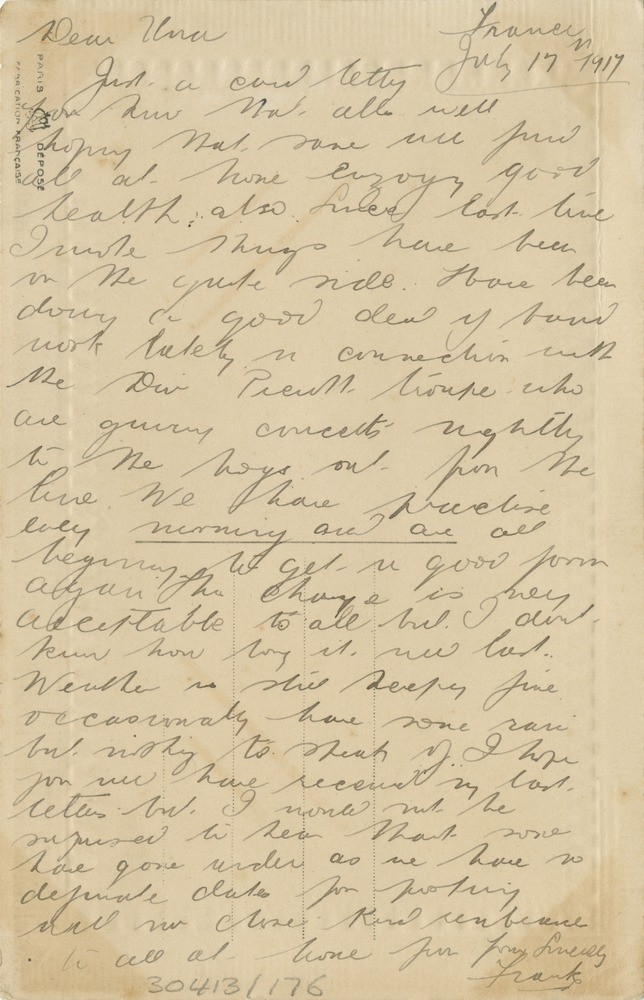 Dear Una
France
July 17th 1917
PARIS
DEPOSE
FABRICATION FRANÇAISE
Just a card letting
you know that all's well
hoping that same will find
all at home enjoying good
health; also. Since last time
I wrote things have been
on the quite side. Have been
doing a good deal of band
work lately in connection with
the Div Pierott troupe who
are giving concerts nightly
to the boys out from the
line We have practise
every morning and are all
beginning to get in good form
again The change is very
acceptable to all but I dont
know how long it will last.
Weather is still keeping fine
occasionally have some rain
but nothing to speak of. I hope
you will have received my last
letters but I would not be
surprised to hear that some
have gone under as we have no
definate dates for posting
will now close Kind rembrance
to all at home from yours Sincerely
Frank
30413/176